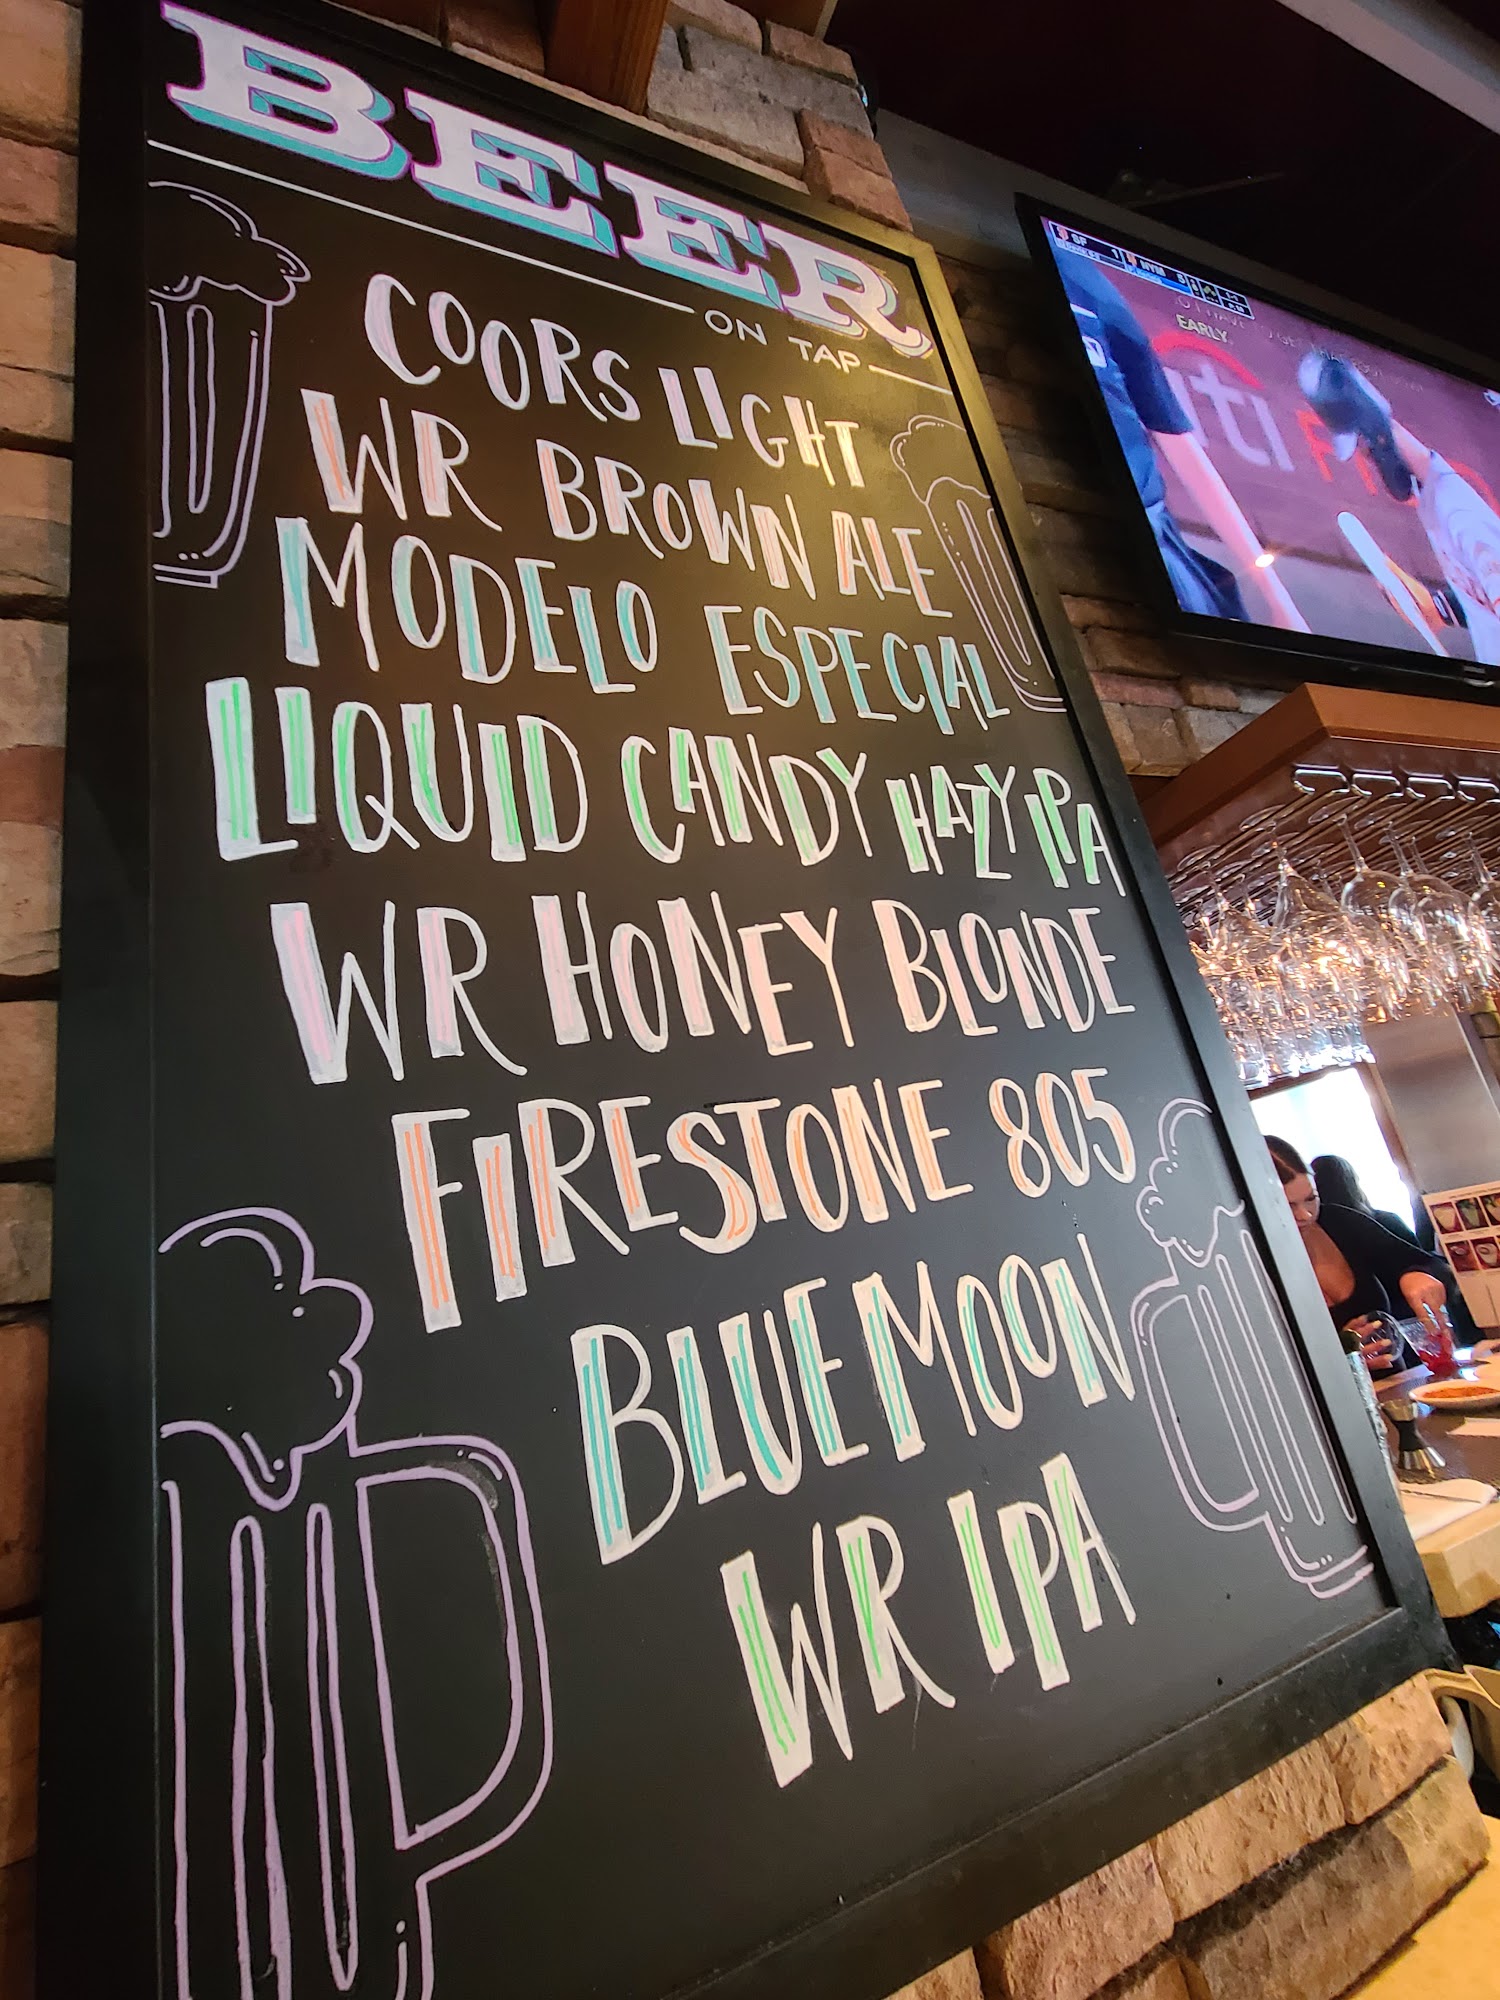 BEER
ON TAP
COORS LIGHT
WR BROWN ALE
MODELO ESPECIAL
LIQUID CANDY HAZY IPA
WR HONEY BLONDE
FIRESTONE 805
BLUE MOON
WR IPA
SF 1 NYM
EARLY.
citi